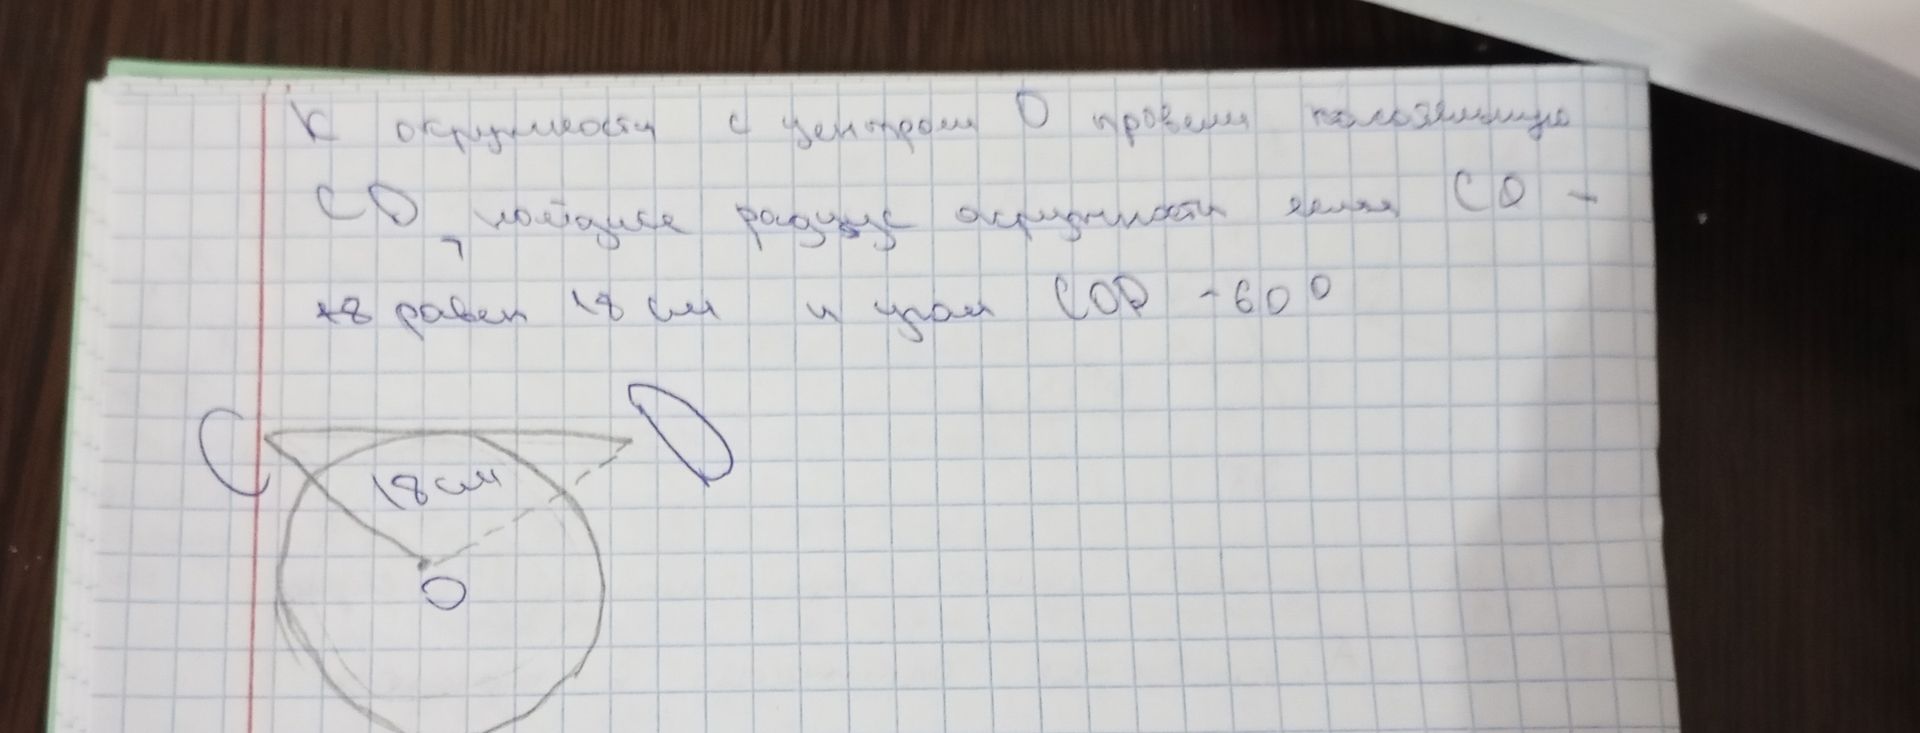 К окружности с центром О провели касательную
CD, найдите радиус окружности если CO -
18 равен 18 см и угол COD - 60°
C
D
18 см
O